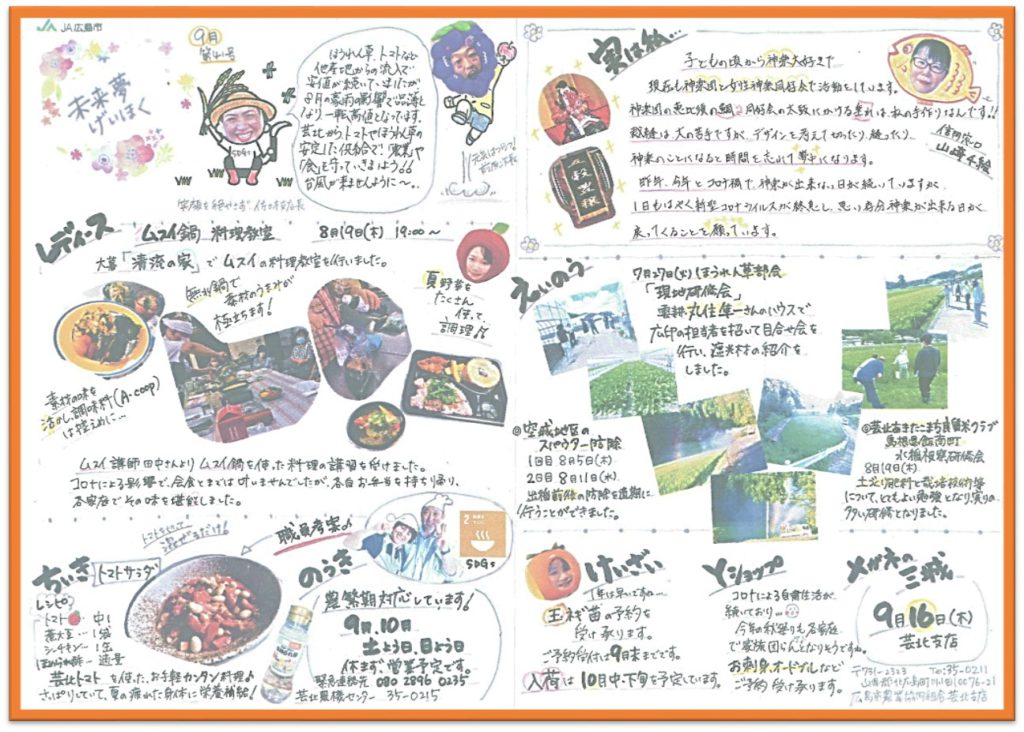 JA広島市
未来夢
げいほく
9月
第41号
ほうれん草、トマトなど
他産地からの流入で
安値が続いていましたが
8月の豪雨の影響で品薄と
なり一転高値となっています。
芸北からトマトやほうれん草の
安定した供給で、農業や
「食」を守っていきましょう!!
台風が来ませんように〜。
SDGs
笑顔を絶やさず
支店長
元気はつらつ!
実は私…
子どもの頃から神楽大好きで
現在も神楽団と女性神楽同好会で活動をしています。
神楽団の恵比須の鯛と同好会の太鼓にかける垂れは、私の手作りなんです!!
裁縫は大の苦手ですが、デザインを考えて切ったり、縫ったり、
神楽のことになると時間を忘れて夢中になります。
昨年、今年とコロナ禍で、神楽が出来ない日が続いていますが、
1日もはやく新型コロナウイルスが終息し、思い存分神楽が出来る日が
戻ってくることを願っています。
五穀豊穣
レディース
ムスイ鍋 料理教室 8月19日(木) 19:00〜
大暮「清流の家」でムスイの料理教室を行いました。
無水鍋で
素材のうまみが
極立ちます!
夏野菜を
たくさん
使って
調理♪
素材の味を
活かし、調味料(A・coop)
は控えめに…
ムスイ講師田中さんよりムスイ鍋を使った料理の講習を受けました。
コロナによる影響で、会食とまでは叶いませんでしたが、各自お弁当を持ち帰り、
各家庭でその味を堪能しました。
えいのう
7月27日(火)ほうれん草部会
「現地研修会」
さんのハウスで
広印の担当者を招いて目合せ会を
行い、遮光材の紹介を
しました。
◎空城地区の
スパウター防除
1回目 8月5日(木)
2回目 8月11日(水)
出穂前後の防除を適期に
行うことができました。
◎芸北あきたこまち良質米クラブ
島根県飯南町
水稲視察研修会
8月19日(木)
土づくり肥料と栽培技術等
について、とてもよい勉強となり、実りの
多い研修となりました。
ちいき
トマトサラダ
トマトをきって
混ぜるだけ!
職員考案♪
レシピ
トマト 中1
蒸大豆… 1袋
シーチキン… 1缶
ぽん酢… 適量
芸北トマトを使った、お手軽カンタン料理♪
さっぱりしていて、夏の疲れた身体に栄養補給!
のうき
2
SDGs
農繁期対応しています!
9月、10月
土よう日、日よう日
休まず営業予定です。
緊急連絡先 080 2896 0235
芸北農機センター 35-0215
けいざい
1年は早いですね…
玉ねぎ苗の予約を
受け承ります。
ご予約受付は9月末までです。
入荷は10月中、下旬を予定しています。
Yショップ
コロナによる自粛生活が
続いており…
今年の秋祭りも各家庭
で家族団らんとなりそうですね。
お刺身、オードブルなど
ご予約受け承ります。
メガネの三城
9月16日(木)
芸北支店
〒731-2323 Tel:35-0211
山県郡北広島町川小田10076-21
広島市農業協同組合芸北支店